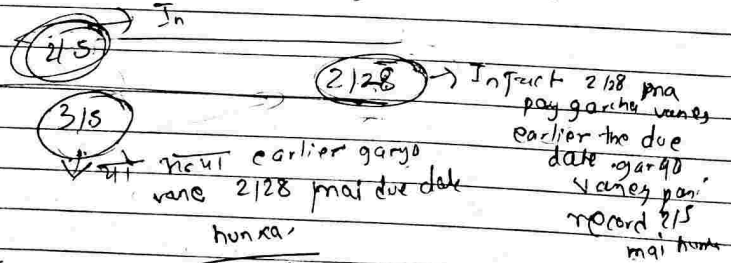 In
2/5
2/28 → In fact 2/28 ma
pay garcha vanes
earlier the due
date garyo
vanes pani
record 2/5
mai hunxa
3/5
earlier garyo
vane 2/28 mai due date
hunxa